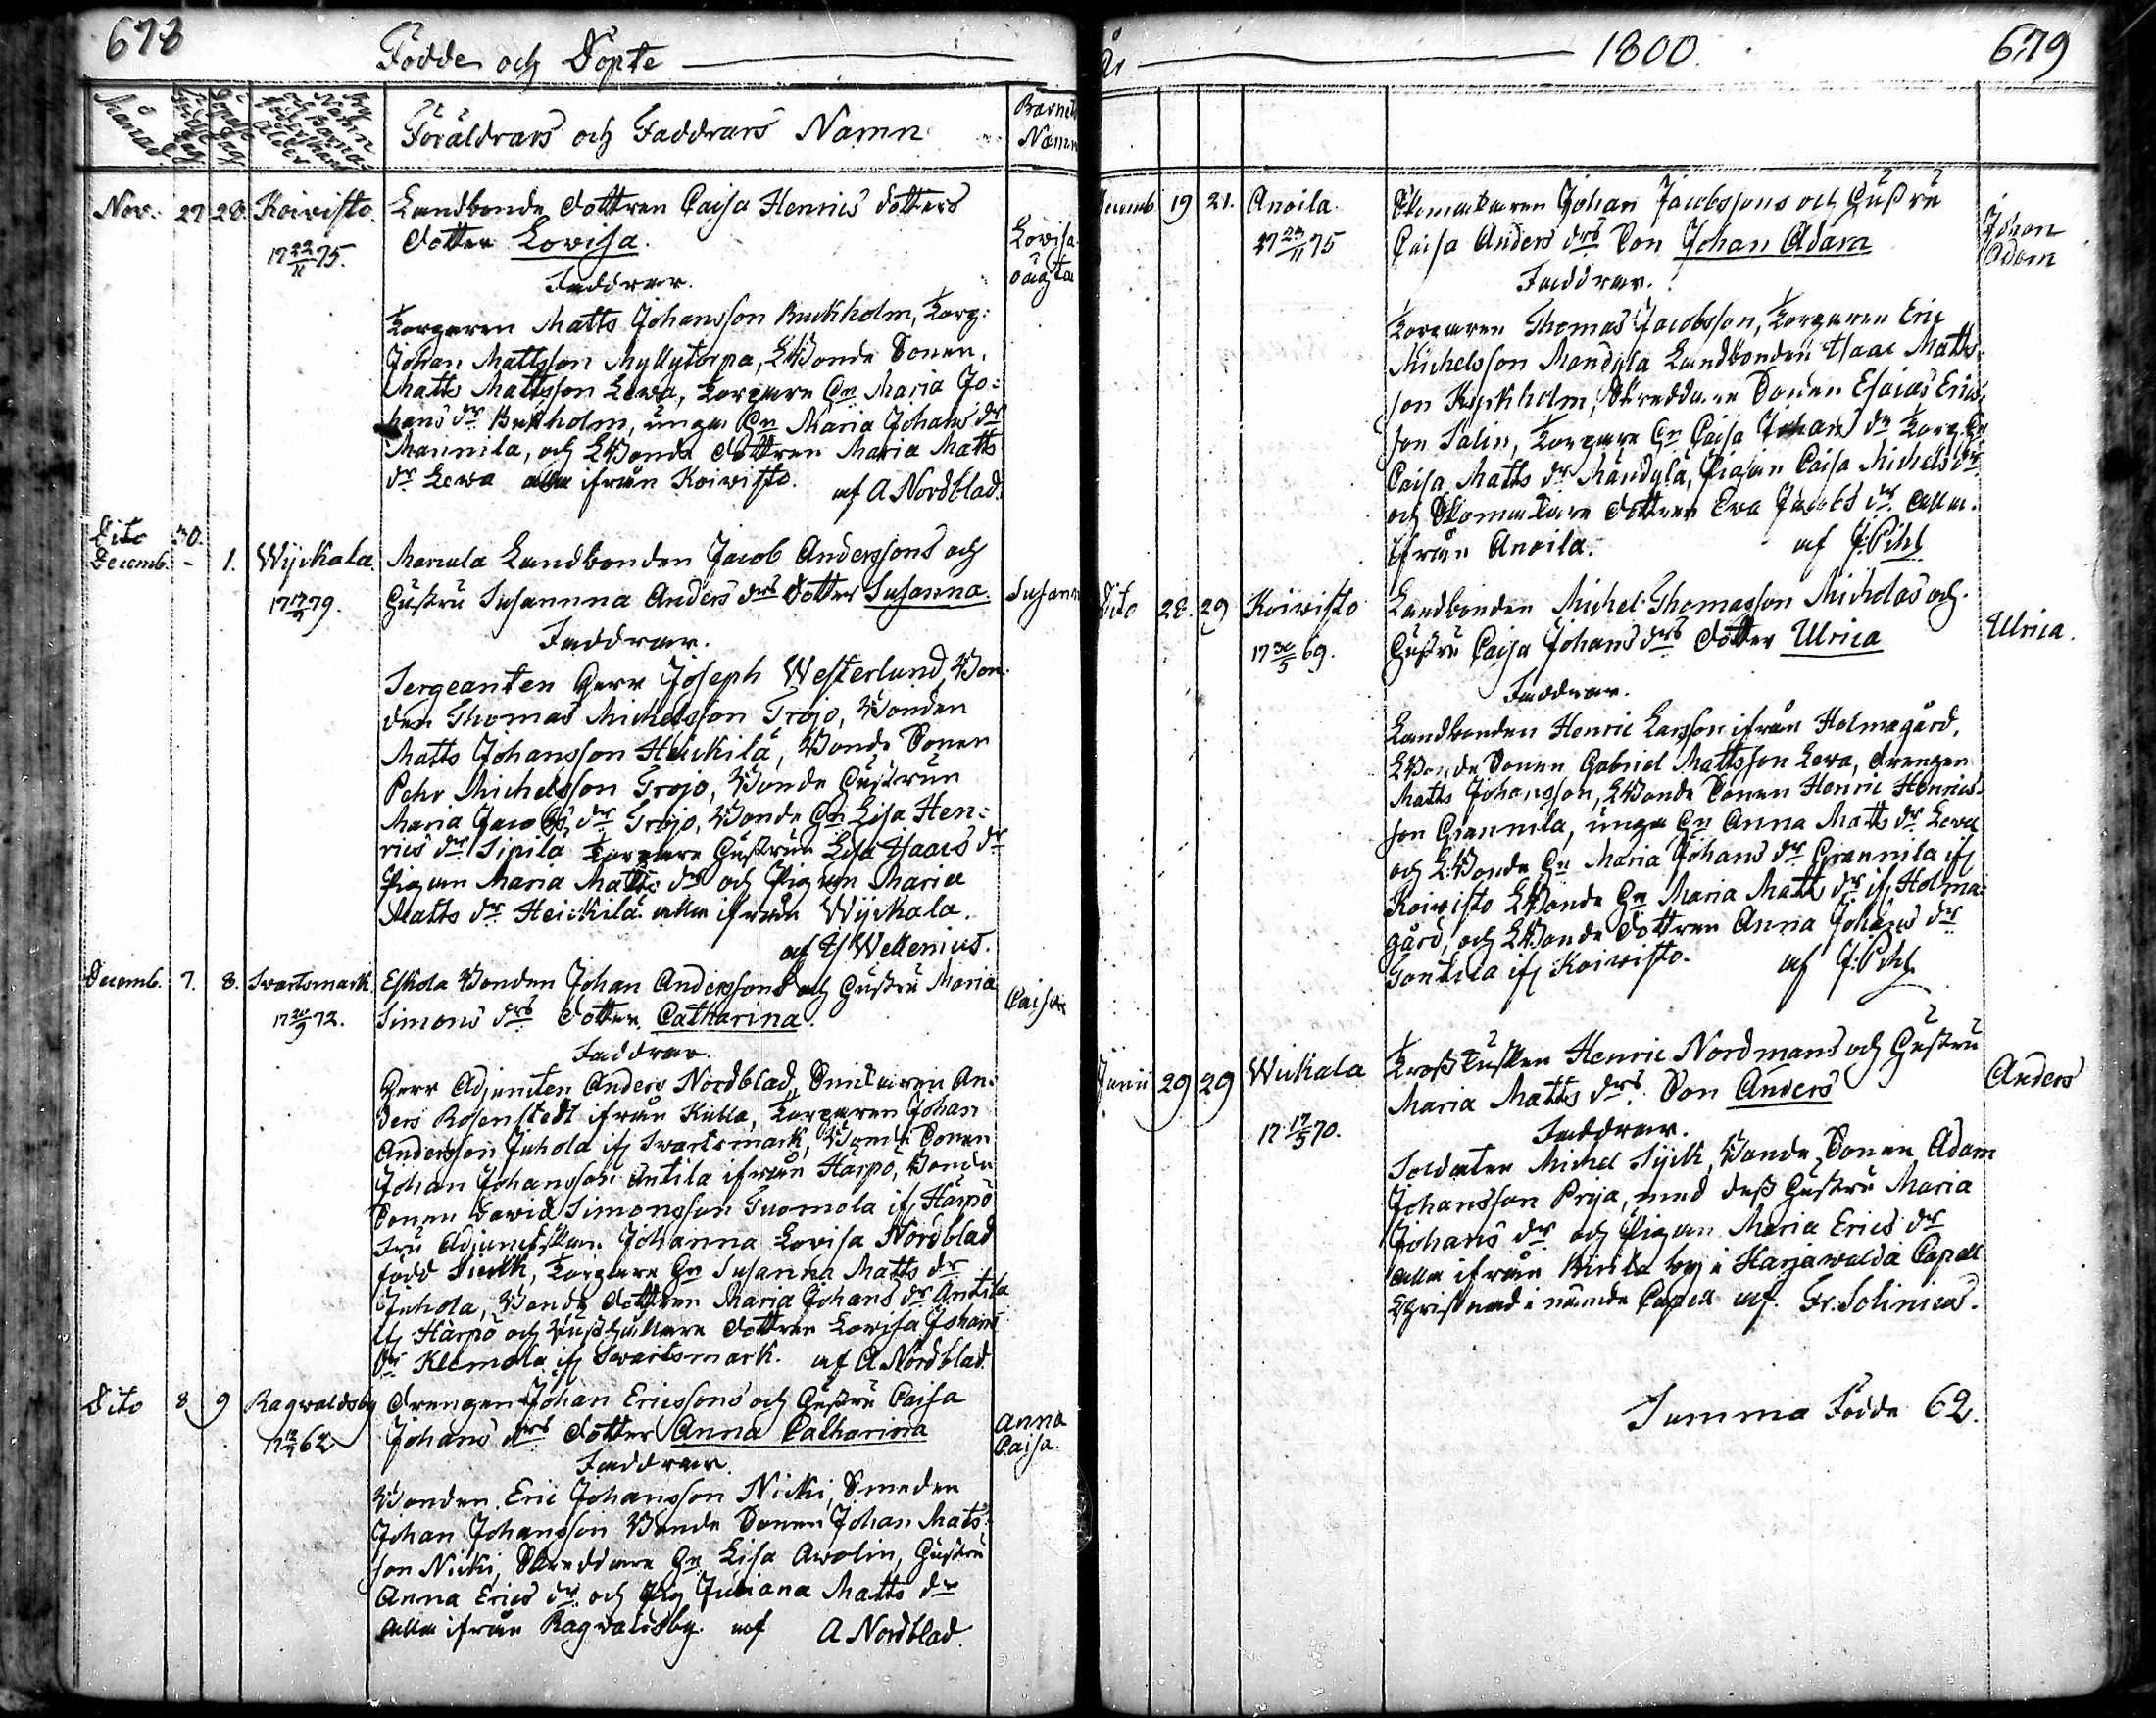 678
Födde och Döpte
Månad
Födelse Dag
Döpelse Dag
By Namn och Barna Föderskans Ålder
Föräldrars och Faddrars Namn
Barnets Namn
Nov. 27 28 Koivisto. Landbonde dottren Caisa Henrics dotters
1722/11 75. dotter Lovisa. Lovisa
oägta
Faddrar.
Torparen Matts Johansson Buckholm, Torp:
Johan Mattsson Myllytorpa, LBonde Sonen,
Matts Mattsson Lewa, Torpare Hn Maria Jo=
hans dr Bukholm, unga Hn Maria Johans dr
Mannila, och LBonde dottren Maria Matts
dr Lewa alla ifrån Koivisto. af A Nordblad.
Dito 30.
Decemb. - 1. Wyckala. Marcula Landbonden Jacob Anderssons och
17 79. Hustru Susannna Anders drs dotter Susanna. Susanna
Faddrar.
Sergeanten Herr Joseph Westerlund, Bon-
den Thomas Michelsson Tröjo, Bonden
Matts Johansson Heickilä, Bonde Sonen
Pehr Michelsson Tröjo, Bonde Hustrun
Maria Jacobs dr Tröjo, Bonde Hn Lisa Hen=
rics dr Sipilä Torpare Hustrun Lisa Isaacs dr
Pigan Maria Matts dr och Pigan Maria
Matts dr Heickilä alla ifrån Wyckala.
af Is Wellenius.
Decemb. 7. 8. Swartsmark. Eskola Bonden Johan Anderssons och Hustru Maria
1720/9 72. Simons drs dotter Catharina. Caisa
Faddrar.
Herr Adjuncten Anders Nordblad, Snickaren An-
ders Rosenstedt ifrån Kulla, Torparen Johan
Andersson Juhola if Swartsmark, Bonde Sonen
Johan Johansson Antila ifrån Härpö, Bonde
Sonen David Simonsson Tuomola if Härpö
Fru Adjunctskan Johanna Lovisa Nordblad
född , Torpare Hn Susanna Matts dr
Juhola, Bonde dottren Maria Johans dr Antila
if Härpö och Bushållare dottren Lovisa Johans
dr Klemola if Swartsmark. af A Nordblad.
Dito 8 9 Ragwaldsby Drengen Johan Ericssons och Hustru Caisa
17 62 Johans drs dotter Anna Catharina Anna
Caisa.
Faddrar.
Bonden Eric Johansson Nicki, Smeden
Johan Johansson Bonde Sonen Johan Mats-
son Nicki, Skreddare Hn Lisa Awolin, Hustru
Anna Erics dr och Pig Juliana Matts dr
alla ifrån Ragvaldsby. af A Nordblad.
År 1800. 679
Decemb 19 21. Anoila. Skomakaren Johan Jacobssons och Hustru
1723/11 75 Caisa Anders drs Son Johan Adam Johan
Adam
Faddrar.
Torparen Thomas Jacobsson, Torparen Eric
Michelsson Mändylä Landbonden Isaac Matts-
son Kyrkholm, Skreddare Sonen Esaias Erics-
son Salin, Torpare Hn Caisa Johans dr Torp. Hn
Caisa Matts dr Mändylä, Pigan Caisa Michels dr
och Skomakare dottren Eva Jacobs dr alla
ifrån Anoila. af J: Pihl
Dito 28. 29 Koivisto Landbonden Michel Thomasson Nicholas och
1730/5 69. Hustru Caisa Johans drs dotter Ulrica Ulrica.
Faddrar.
Landbonden Henric Larsson ifrån Holmagård,
LBonde Sonen Gabriel Mattsson Lewa, drengen
Matts Johansson, LBonde Sonen Henric Henrics-
son Grannila, unga Hn Anna Matts dr Lewa
och LBonde Hn Maria Johans dr Grannila if
Koivisto LBonde Hn Maria Matts dr if Holma-
gård, och LBonde dottren Anna Johans dr
if Koivisto. af J: Pihl
Junii 29 29 Wickala Henric Nordmans och Hustru
1717/5 70. Maria Matts drs Son Anders Anders
Faddrar.
Soldaten Michel Syck, Bonde Sonen Adam
Johansson Prija, med dess Hustru Maria
Johans dr och Pigan Maria Erics dr
alla ifrån by i Harjawalda Capell
Christnad i nämde Capell af Gr. Solinius.
Summa Födde 62.